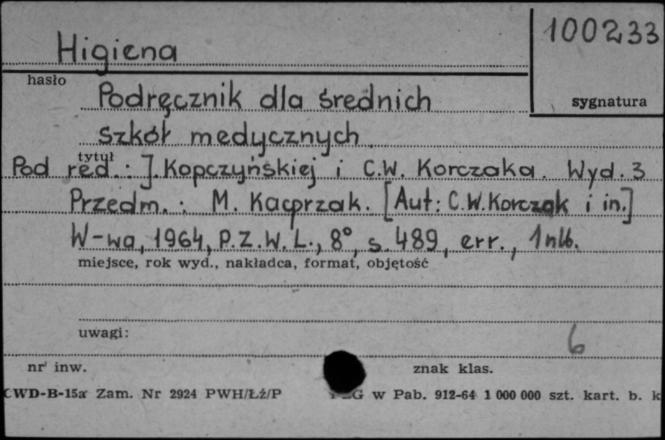 Higiena
100233
hasło
sygnatura
Podręcznik dla średnich
szkół medycznych.
tytuł
Pod red.: J. Kopczyńskiej i C.W. Korczaka. Wyd. 3
Przedm.: M. Kacprzak. [Aut: C.W. Korczak i in.]
W-wa, 1964, P.Z.W.L., 8°, s. 489, err., 1 nlb.
miejsce, rok wyd., nakładca, format, objętość
uwagi:
6
nr inw.
znak klas.
CWD-B-15a Zam. Nr 2924 PWH/Łź/P
w Pab. 912-64 1 000 000 szt. kart. b. k